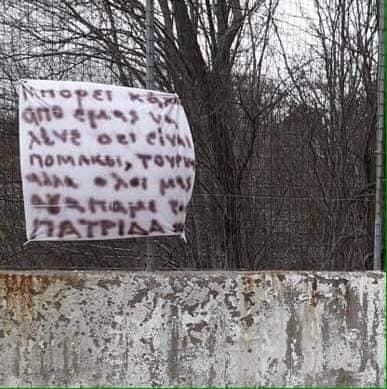 μπορει κα
απο εμας να
λενε οτι ειναι
πομακοι, τουρκ
αλλα ολοι μας
αγαπαμε τη
πατριδα